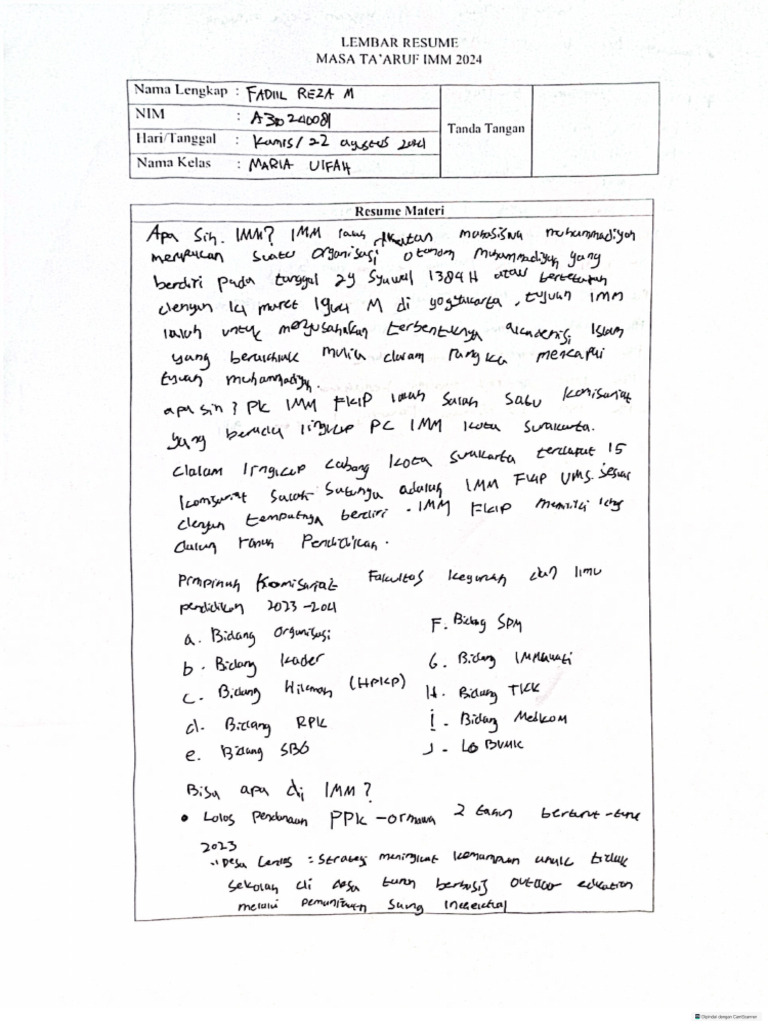 LEMBAR RESUME
MASA TA'ARUF IMM 2024
Nama Lengkap : FADIIL REZA M
NIM : A310240081
Hari/Tanggal : Kamis / 22 agustus 2024
Nama Kelas : MARIA ULFAH
Tanda Tangan
Resume Materi
Apa Sih. IMM? IMM ialah ikatan mahasiswa muhammadiyah
merupakan suatu organisasi otonom Muhammadiyah yang
berdiri pada tanggal 29 Syawal 1384 H atau bertepatan
dengan 14 maret 1964 M di yogyakarta, tujuan IMM
ialah untuk mengusahakan terbentuknya akademisi Islam
yang berakhlak mulia dalam rangka mencapai
tujuan muhammadiyah.
apa sih? PK IMM FKIP ialah salah satu komisariat
yang berada lingkup PC IMM kota Surakarta.
dalam lingkup cabang kota surakarta terdapat 15
komisariat salah satunya adalah IMM FKIP UMS. sesuai
dengan tempatnya berdiri. IMM FKIP memiliki
dalam ranah Pendidikan.
Pimpinan Komisariat Fakultas keguruan dan Ilmu
pendidikan 2023-2024
a. Bidang Organisasi
b. Bidang kader
c. Bidang Hikmah (HPKP)
d. Bidang RPK
e. Bidang SBO
F. Bidang SPM
G. Bidang IMMawati
H. Bidang TKK
I. Bidang Medkom
J. LO BUMK
Bisa apa di IMM?
• Lolos Pendanaan PPK-ormawa 2 tahun berturut-turut
2023
"Desa Cerdas = Strategi meningkat kemampuan anak tidak
sekolah di desa turen berbasis outdoor education
melalui pemanfaatan
Dipindai dengan CamScanner